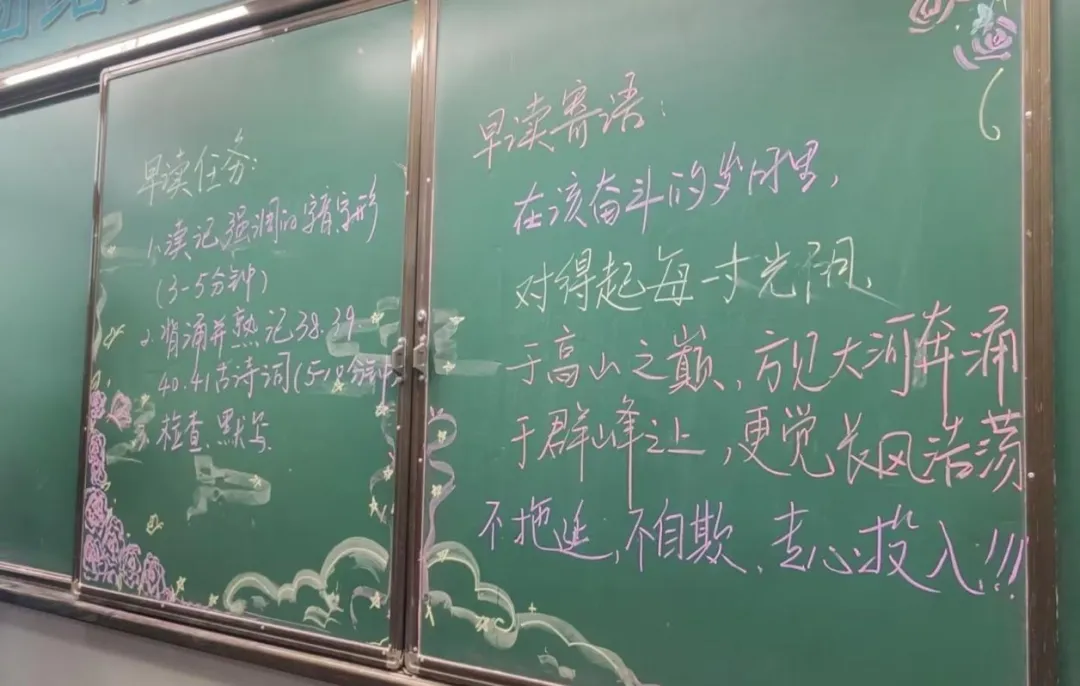 早读任务:
1. 读记强调的字音,字形
(3-5分钟)
2. 背诵并熟记38.39
40.41古诗词(5-18分钟)
3. 检查.默写.
早读寄语:
在该奋斗的岁月里,
对得起每一寸光阴.
于高山之巅、方见大河奔涌
于群峰之上,更觉长风浩荡
不拖延,不自欺、走心投入!!!